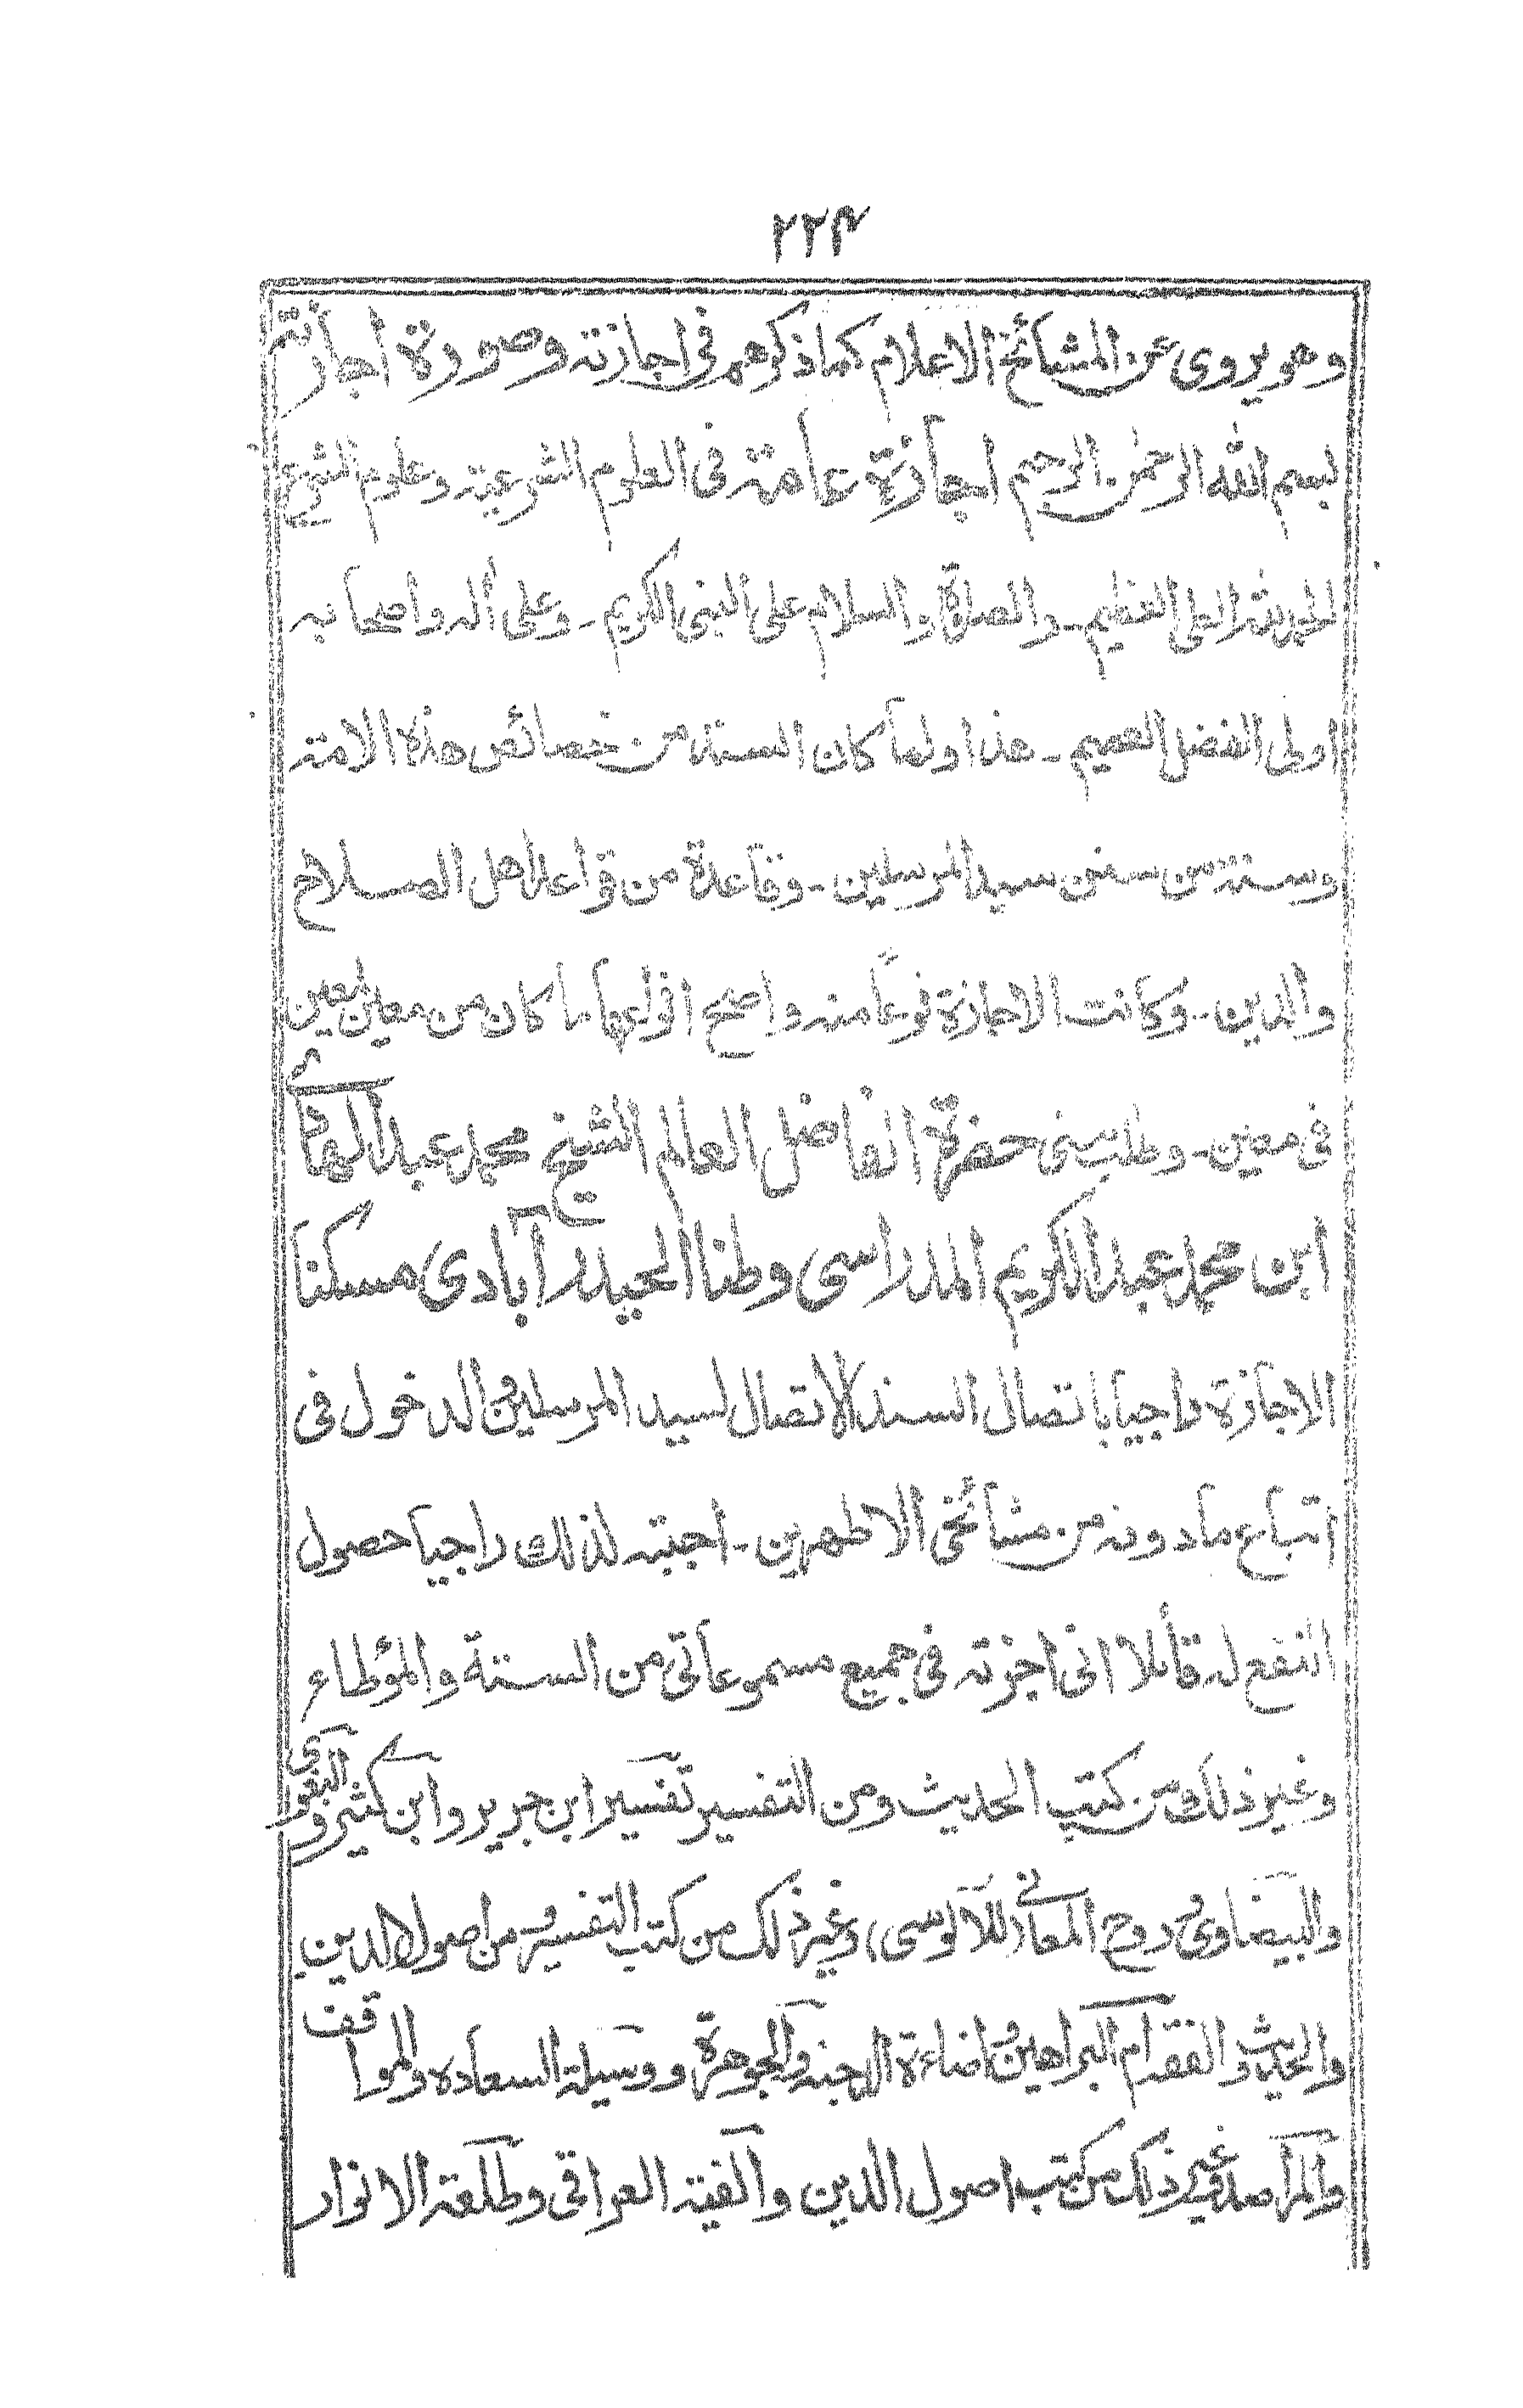 ٢٢٤
وهو يروى عن المشائخ الاعلام كما ذكرهم فى اجازته وصورة اجازته
بسم الله الرحمن الرحيم اجازة عامة فى العلوم الشرعية وعلوم الشرع
الحمد لله العلى العظيم ـ والصلاة والسلام على النبى الكريم ـ وعلى أله واصحابه
اولى الفضل العميم ـ هذا ولما كان السند من خصائص هذه الامة
وسنة من سنن سيد المرسلين ـ وقاعدة من قواعد اهل الصلاح
والدين ـ وكانت الاجازة نوعاً منه واصح انواعها ما كان من معين لمعين
فى معين ـ وطلب منى حضرة الفاضل العالم الشيخ محمد عبد الهادى
ابن محمد عبد الكريم المدراسى وطنا الحيدر آبادى مسكنا
الاجازة راجيا باتصال السند الاتصال لسيد المرسلين والدخول فى
اتباع مادونه من مشائخى الاطهرين ـ اجبته لذلك راجيا حصول
النفع له قائلا انى اجزته فى جميع مسموعاتى من الستة والمؤطاء
وغير ذلك من كتب الحديث ومن التفسير تفسير ابن جرير وابن كثير والبغوى
والبيضاوى وروح المعانى (للآلوسى) وغير ذلك من كتب التفسير ومن اصول الدين
والحديث والفقه ام البراهين واضاءة الدجنه والجوهرة ووسيلة السعاده والمواقف
والمراصد وغير ذلك من كتب اصول الدين والفية العراقى وطلعة الانوار